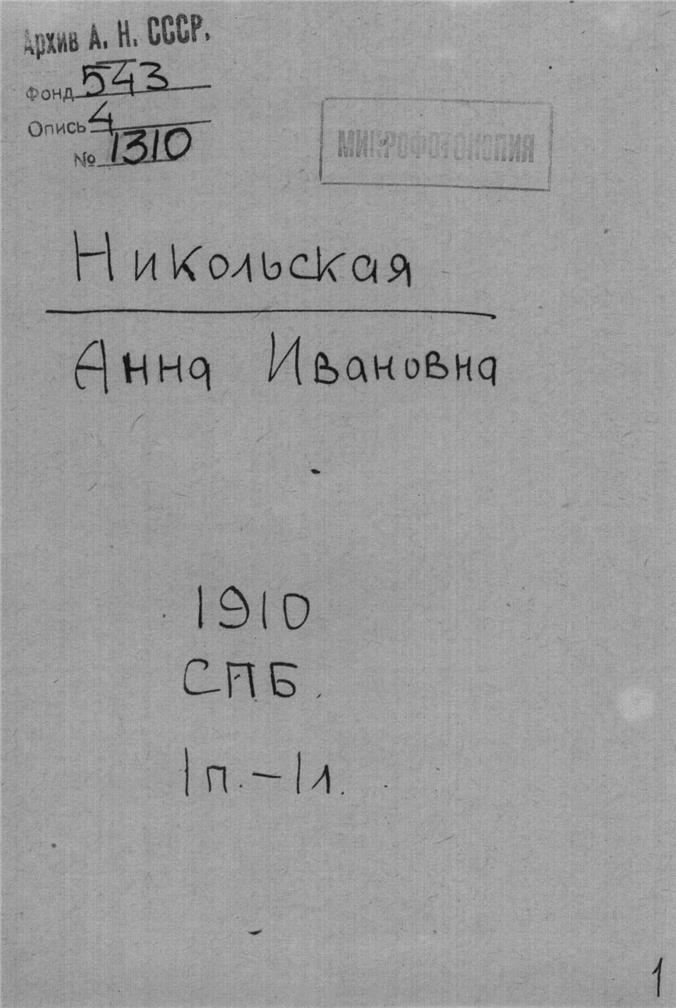 Архив А. Н. СССР.
Фонд 543
Опись 4
№ 1310
МИКРОФОТОКОПИЯ
Никольская
Анна Ивановна
1910
СПБ.
1п. – 1л.
1